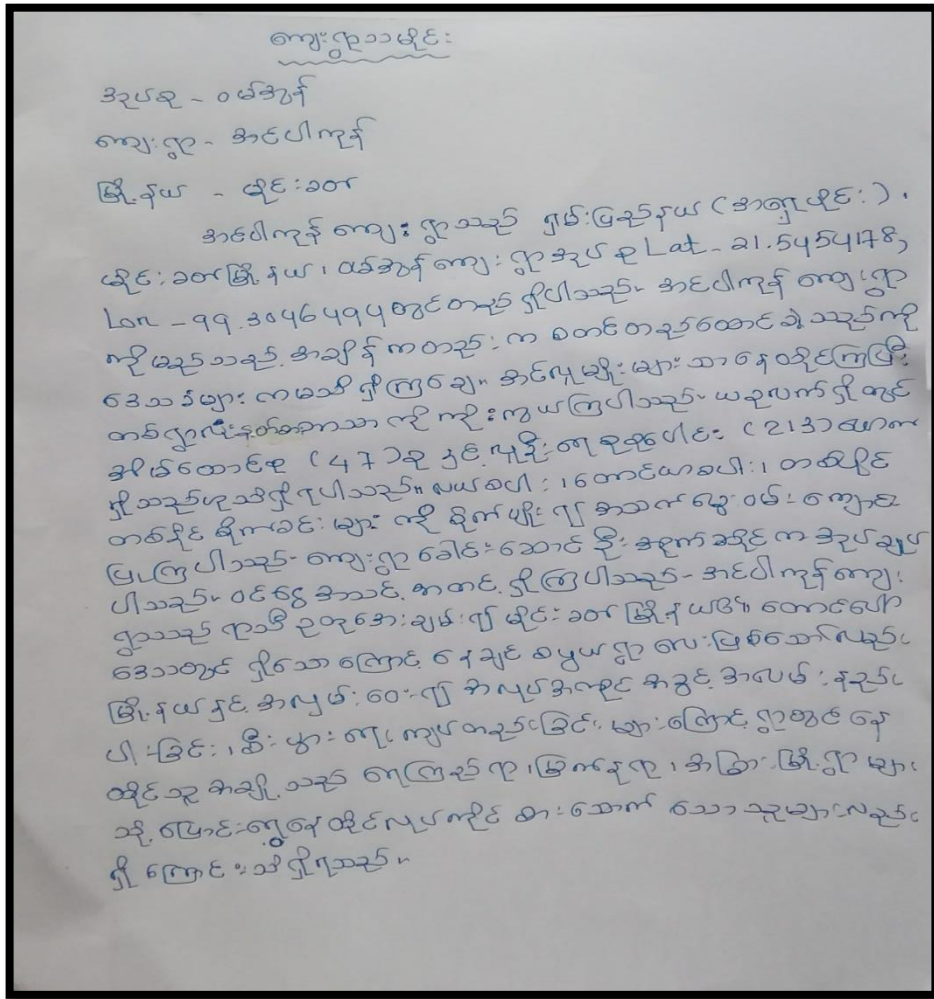 ကျေးရွာသမိုင်း
အုပ်စု - ဝမ်အွန်
ကျေးရွာ - အင်ပါကုန်
မြို့နယ် - မိုင်းခတ်
အင်ပါကုန် ကျေးရွာသည် ရှမ်းပြည်နယ် (အရှေ့ပိုင်း) ၊
မိုင်းခတ်မြို့နယ်၊ ဝမ်အွန်ကျေးရွာအုပ်စု Lat - 21.5454178,
Lon - 99.3046494 တွင်တည်ရှိပါသည်။ အင်ပါကုန် ကျေးရွာ
ကိုမည်သည့်အချိန်ကတည်းက စတင်တည်ထောင်ခဲ့သည်ကို
ဒေသခံများကမသိရှိကြချေ။ အင်လူမျိုးများသာနေထိုင်ကြပြီး
တစ်ရွာလုံးနတ်ဘာသာကိုကိုးကွယ်ကြပါသည်။ ယခုလက်ရှိတွင်
အိမ်ထောင်စု (47) စု နှင့် လူဦးရေစုစုပေါင်း (213) ယောက်
ရှိသည်ဟုသိရှိရပါသည်။ လယ်စပါး၊ တောင်ယာစပါး၊ တစ်ပိုင်
တစ်နိုင် စိုက်ခင်းများကို စိုက်ပျိုး၍ အသက်မွေးဝမ်းကျောင်း
ပြုကြပါသည်။ ကျေးရွာခေါင်းဆောင် ဦးအစိုက်ဆိုင်ကအုပ်ချုပ်
ပါသည်။ ဝင်ငွေအသင့်အတင့်ရှိကြပါသည်။ အင်ပါကုန်ကျေး
ရွာသည် ရာသီဥတုအေးချမ်း၍ မိုင်းခတ်မြို့နယ်၏ တောင်ပေါ်
ဒေသတွင် ရှိသောကြောင့် နေချင်စဖွယ်ရွာလေးဖြစ်သော်လည်း
မြို့နယ်နှင့်အလှမ်းဝေး၍ အလုပ်အကိုင်အခွင့်အလမ်းနည်း
ပါးခြင်း၊ စီးပွားရေးကျပ်တည်းခြင်းများကြောင့် ရွာတွင်နေ
ထိုင်သူအချို့သည် ရေကြည်ရာ၊ မြက်နုရာ၊ အခြားမြို့ရွာများ
သို့ ပြောင်းရွှေ့နေထိုင်လုပ်ကိုင်စားသောက်သောသူများလည်း
ရှိကြောင်းသိရှိရသည်။